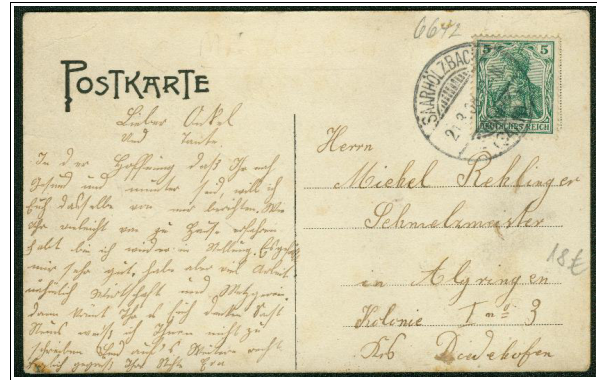 6642
POSTKARTE
SAARHÖLZBACH
5 5
DEUTSCHES REICH
Lieber Onkel
und Tante.
In der Hoffnung daß Ihr noch
gesund und munter seid, will ich
Euch dasselbe von mir berichten. Wie
Ihr vieleicht von zu Hause erfahren
habt bin ich wieder in Stellung. Es gefällt
mir sehr gut, habe aber viel Arbeit
nämlich Wirtschaft und Metzgerei.
dann könnt Ihr Euch denken
Neues weiß ich Ihnen nicht zu
schreiben und auf's Weitere
herzlich gegrüßt Ihre Nichte
Herrn
Michel Rehlinger
Schmelzmeister
in Algringen
Kolonie I no 3
Krs Diedehofen
18€